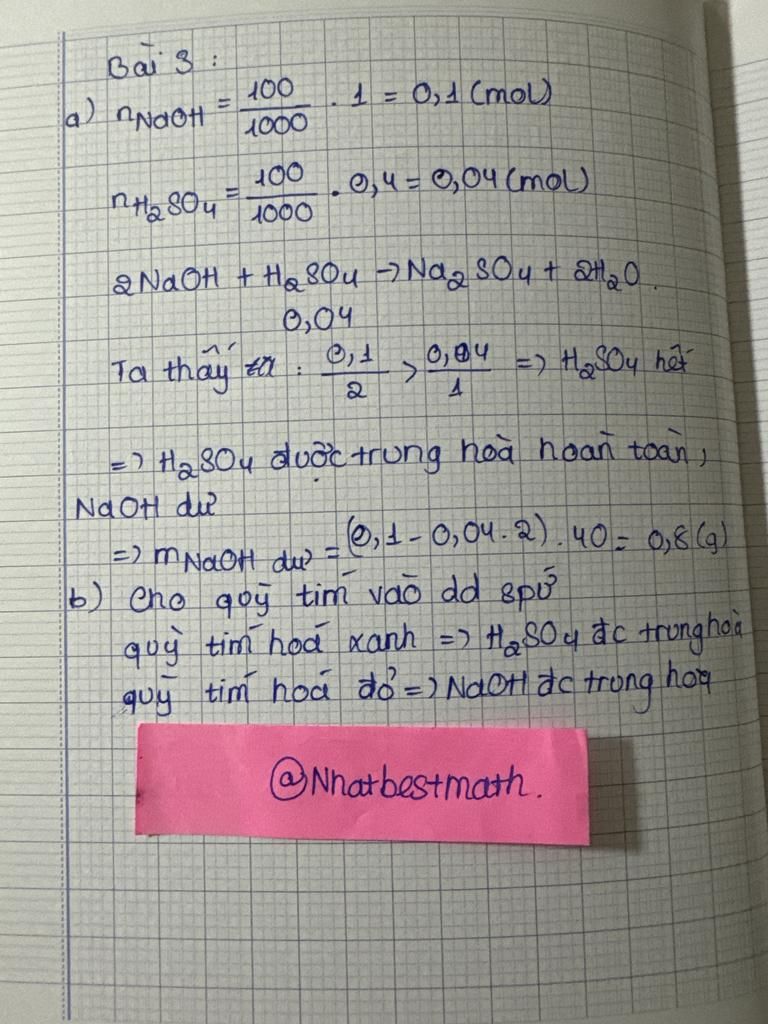 Bài 3 :
a) nNaOH = 100/1000 . 1 = 0,1 (mol)
nH₂SO₄ = 100/1000 . 0,4 = 0,04 (mol)
2NaOH + H₂SO₄ → Na₂SO₄ + 2H₂O.
0,04
Ta thấy : 0,1/2 > 0,04/1 => H₂SO₄ hết
=> H₂SO₄ được trung hoà hoàn toàn,
NaOH dư
=> mNaOH dư = (0,1 - 0,04.2).40 = 0,8 (g)
b) Cho quỳ tím vào dd spứ
quỳ tím hoá xanh => H₂SO₄ đc trung hoà
quỳ tím hoá đỏ => NaOH đc trung hoà
@Nhatbestmath.